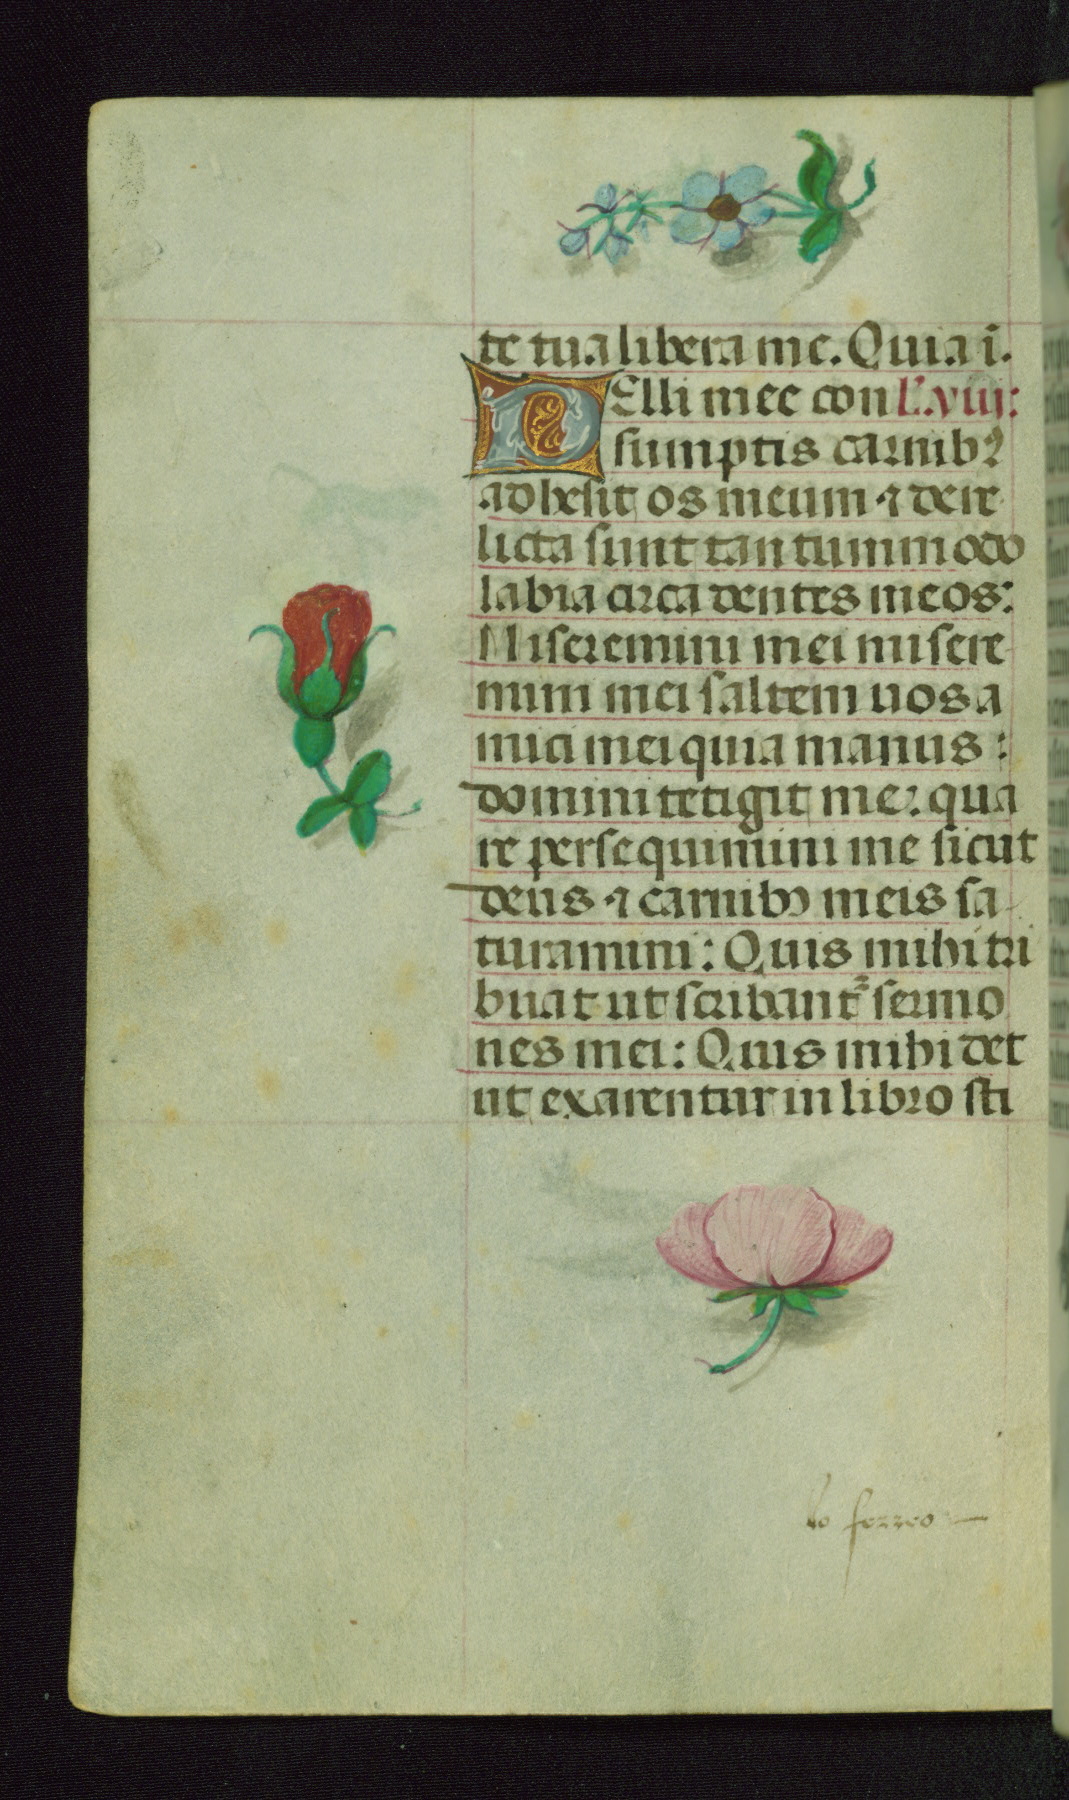 te tua libera me. Quia i.
PElli mee con L'. viij:
sumptis carnibꝰ
adhesit os meum ⁊ dere
licta sunt tantummodo
labia circa dentes meos:
Miseremini mei misere
mini mei saltem uos a
mici mei quia manus :
domini tetigit me: qua
re persequimini me sicut
deus ⁊ carnibꝰ meis sa
turamini: Quis mihi tri
buat ut scribant᷑ sermo
nes mei: Quis mihi det
ut exarentur in libro sti
lo ferreo